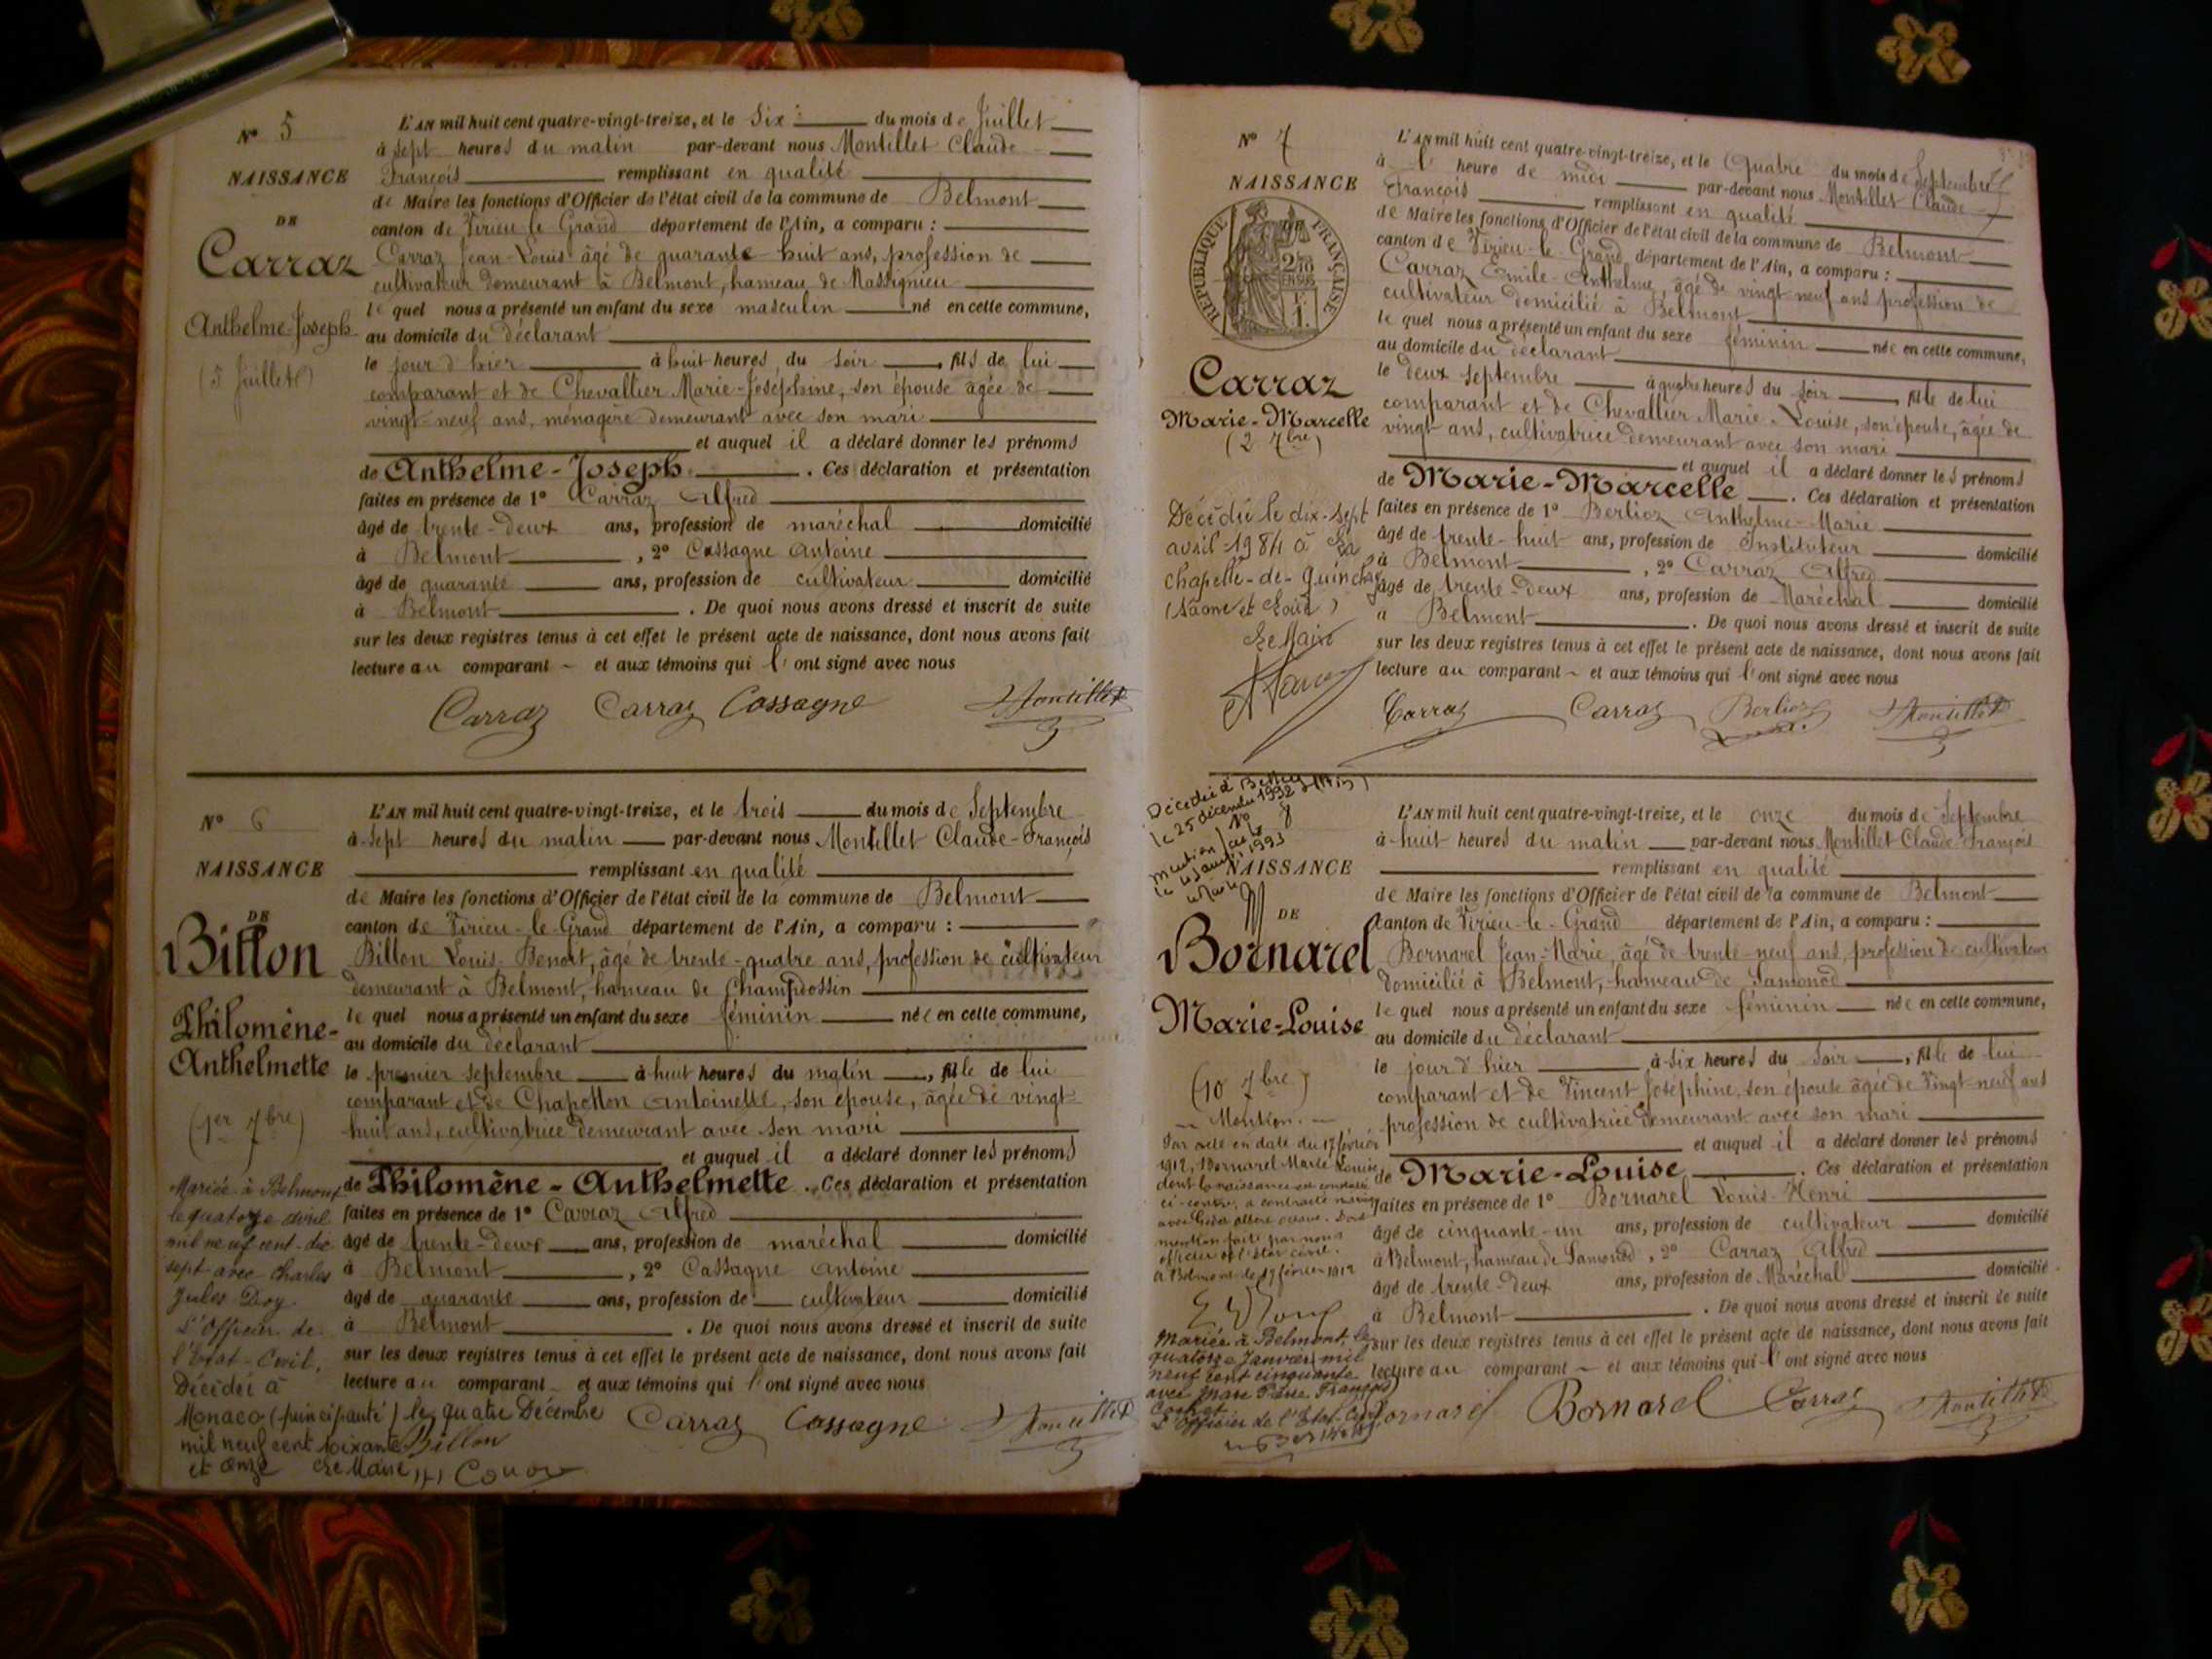 N° 5
NAISSANCE
DE
Carraz
Anthelme-Joseph
(5 Juillet)
L'AN mil huit cent quatre-vingt-treize, et le Six du mois de Juillet
à sept heures du matin par-devant nous Montillet Claude
François remplissant en qualité
de Maire les fonctions d'Officier de l'état civil de la commune de Belmont
canton de Virieu-le-Grand département de l'Ain, a comparu :
Carraz Jean-Louis âgé de quarante-huit ans, profession de
cultivateur demeurant à Belmont, hameau de Massignieu
le quel nous a présenté un enfant du sexe masculin né en cette commune,
au domicile du déclarant
le jour d'hier à huit heures du soir, fils de lui
comparant et de Chevallier Marie-Joséphine, son épouse âgée de
vingt-neuf ans, ménagère demeurant avec son mari
et auquel il a déclaré donner les prénoms
de Anthelme-Joseph. Ces déclaration et présentation
faites en présence de 1° Carraz Alfred
âgé de trente-deux ans, profession de maréchal domicilié
à Belmont, 2° Cassagne Antoine
âgé de quarante ans, profession de cultivateur domicilié
à Belmont. De quoi nous avons dressé et inscrit de suite
sur les deux registres tenus à cet effet le présent acte de naissance, dont nous avons fait
lecture au comparant ~ et aux témoins qui l'ont signé avec nous
Carraz Carraz Cassagne Montillet
N° 6
NAISSANCE
DE
Billon
Philomène-
Anthelmette
(1er 7bre)
Mariée à Belmont
le quatorze avril
mil neuf cent dix
sept avec Charles
Jules Droy.
L'Officier de
l'Etat-Civil,
Décédée à
Monaco (principauté) le quatre Décembre
mil neuf cent soixante
et onze Le Maire,
L'AN mil huit cent quatre-vingt-treize, et le trois du mois de Septembre
à sept heures du matin par-devant nous Montillet Claude-François
remplissant en qualité
de Maire les fonctions d'Officier de l'état civil de la commune de Belmont
canton de Virieu-le-Grand département de l'Ain, a comparu :
Billon Louis-Benoit, âgé de trente-quatre ans, profession de cultivateur
demeurant à Belmont, hameau de Champdossin
le quel nous a présenté un enfant du sexe féminin née en cette commune,
au domicile du déclarant
le premier septembre à huit heures du matin, fille de lui
comparant et de Chapellon Antoinette, son épouse, âgée de vingt-
huit ans, cultivatrice demeurant avec son mari
et auquel il a déclaré donner les prénoms
de Philomène-Anthelmette. Ces déclaration et présentation
faites en présence de 1° Carraz Alfred
âgé de trente-deux ans, profession de maréchal domicilié
à Belmont, 2° Cassagne Antoine
âgé de quarante ans, profession de cultivateur domicilié
à Belmont. De quoi nous avons dressé et inscrit de suite
sur les deux registres tenus à cet effet le présent acte de naissance, dont nous avons fait
lecture au comparant et aux témoins qui l'ont signé avec nous
Billon Carraz Cassagne Montillet
N° 7
NAISSANCE
REPUBLIQUE FRANÇAISE
2/10 EN SUS
Carraz
Marie-Marcelle
(2 7bre)
Décédée le dix-sept
avril 1984 à La
chapelle-de-Guinchay
(Saône et Loire)
Le Maire
L'AN mil huit cent quatre-vingt-treize, et le Quatre du mois de Septembre
à l' heure de midi par-devant nous Montillet Claude
François remplissant en qualité
de Maire les fonctions d'Officier de l'état civil de la commune de Belmont
canton de Virieu-le-Grand département de l'Ain, a comparu :
Carraz Emile-Anthelme, âgé de vingt neuf ans profession de
cultivateur domicilié à Belmont
le quel nous a présenté un enfant du sexe féminin née en cette commune,
au domicile du déclarant
le deux septembre à quatre heures du soir, fille de lui
comparant et de Chevallier Marie-Louise, son épouse, âgée de
vingt ans, cultivatrice demeurant avec son mari
et auquel il a déclaré donner les prénoms
de Marie-Marcelle. Ces déclaration et présentation
faites en présence de 1° Berlioz Anthelme-Marie
âgé de trente-huit ans, profession de Instituteur domicilié
à Belmont, 2° Carraz Alfred
âgé de trente-deux ans, profession de Maréchal domicilié
à Belmont. De quoi nous avons dressé et inscrit de suite
sur les deux registres tenus à cet effet le présent acte de naissance, dont nous avons fait
lecture au comparant ~ et aux témoins qui l'ont signé avec nous
Carraz Carraz Berlioz Montillet
Décédée à Belley (Ain)
le 25 décembre 1992
N° 8
NAISSANCE
DE
Bornarel
Marie-Louise
(10 7bre)
Mention.
Par acte en date du 17 février
1912, Bornarel Marie Louise
dont la naissance est constatée
ci-contre, a contracté mariage
mention faite par nous
officier de l'état civil.
à Belmont le 19 février 1912
Mariée à Belmont, le
quatorze Janvier mil
neuf cent cinquante
avec Marc Pierre François
L'Officier de l'Etat-Civil
L'AN mil huit cent quatre-vingt-treize, et le onze du mois de Septembre
à huit heures du matin par-devant nous Montillet Claude François
remplissant en qualité
de Maire les fonctions d'Officier de l'état civil de la commune de Belmont
canton de Virieu-le-Grand département de l'Ain, a comparu :
Bornarel Jean-Marie, âgé de trente-neuf ans, profession de cultivateur
domicilié à Belmont, hameau de Samonod
le quel nous a présenté un enfant du sexe féminin née en cette commune,
au domicile du déclarant
le jour d'hier à six heures du soir, fille de lui
comparant et de Vincent Joséphine, son épouse âgée de vingt-neuf ans
profession de cultivatrice demeurant avec son mari
et auquel il a déclaré donner les prénoms
de Marie-Louise. Ces déclaration et présentation
faites en présence de 1° Bornarel Louis-Henri
âgé de cinquante-un ans, profession de cultivateur domicilié
à Belmont, hameau de Samonod, 2° Carraz Alfred
âgé de trente-deux ans, profession de Maréchal domicilié
à Belmont. De quoi nous avons dressé et inscrit de suite
sur les deux registres tenus à cet effet le présent acte de naissance, dont nous avons fait
lecture au comparant ~ et aux témoins qui l'ont signé avec nous
Bornarel Bornarel Carraz Montillet